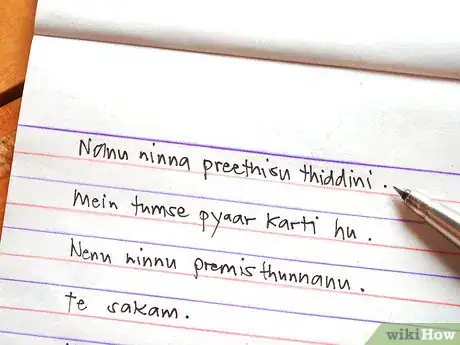 Nanu ninna preethisu thiddini.
Mein tumse pyaar karti hu.
Nenu ninnu premisthunnanu.
te sakam.
wikiHow